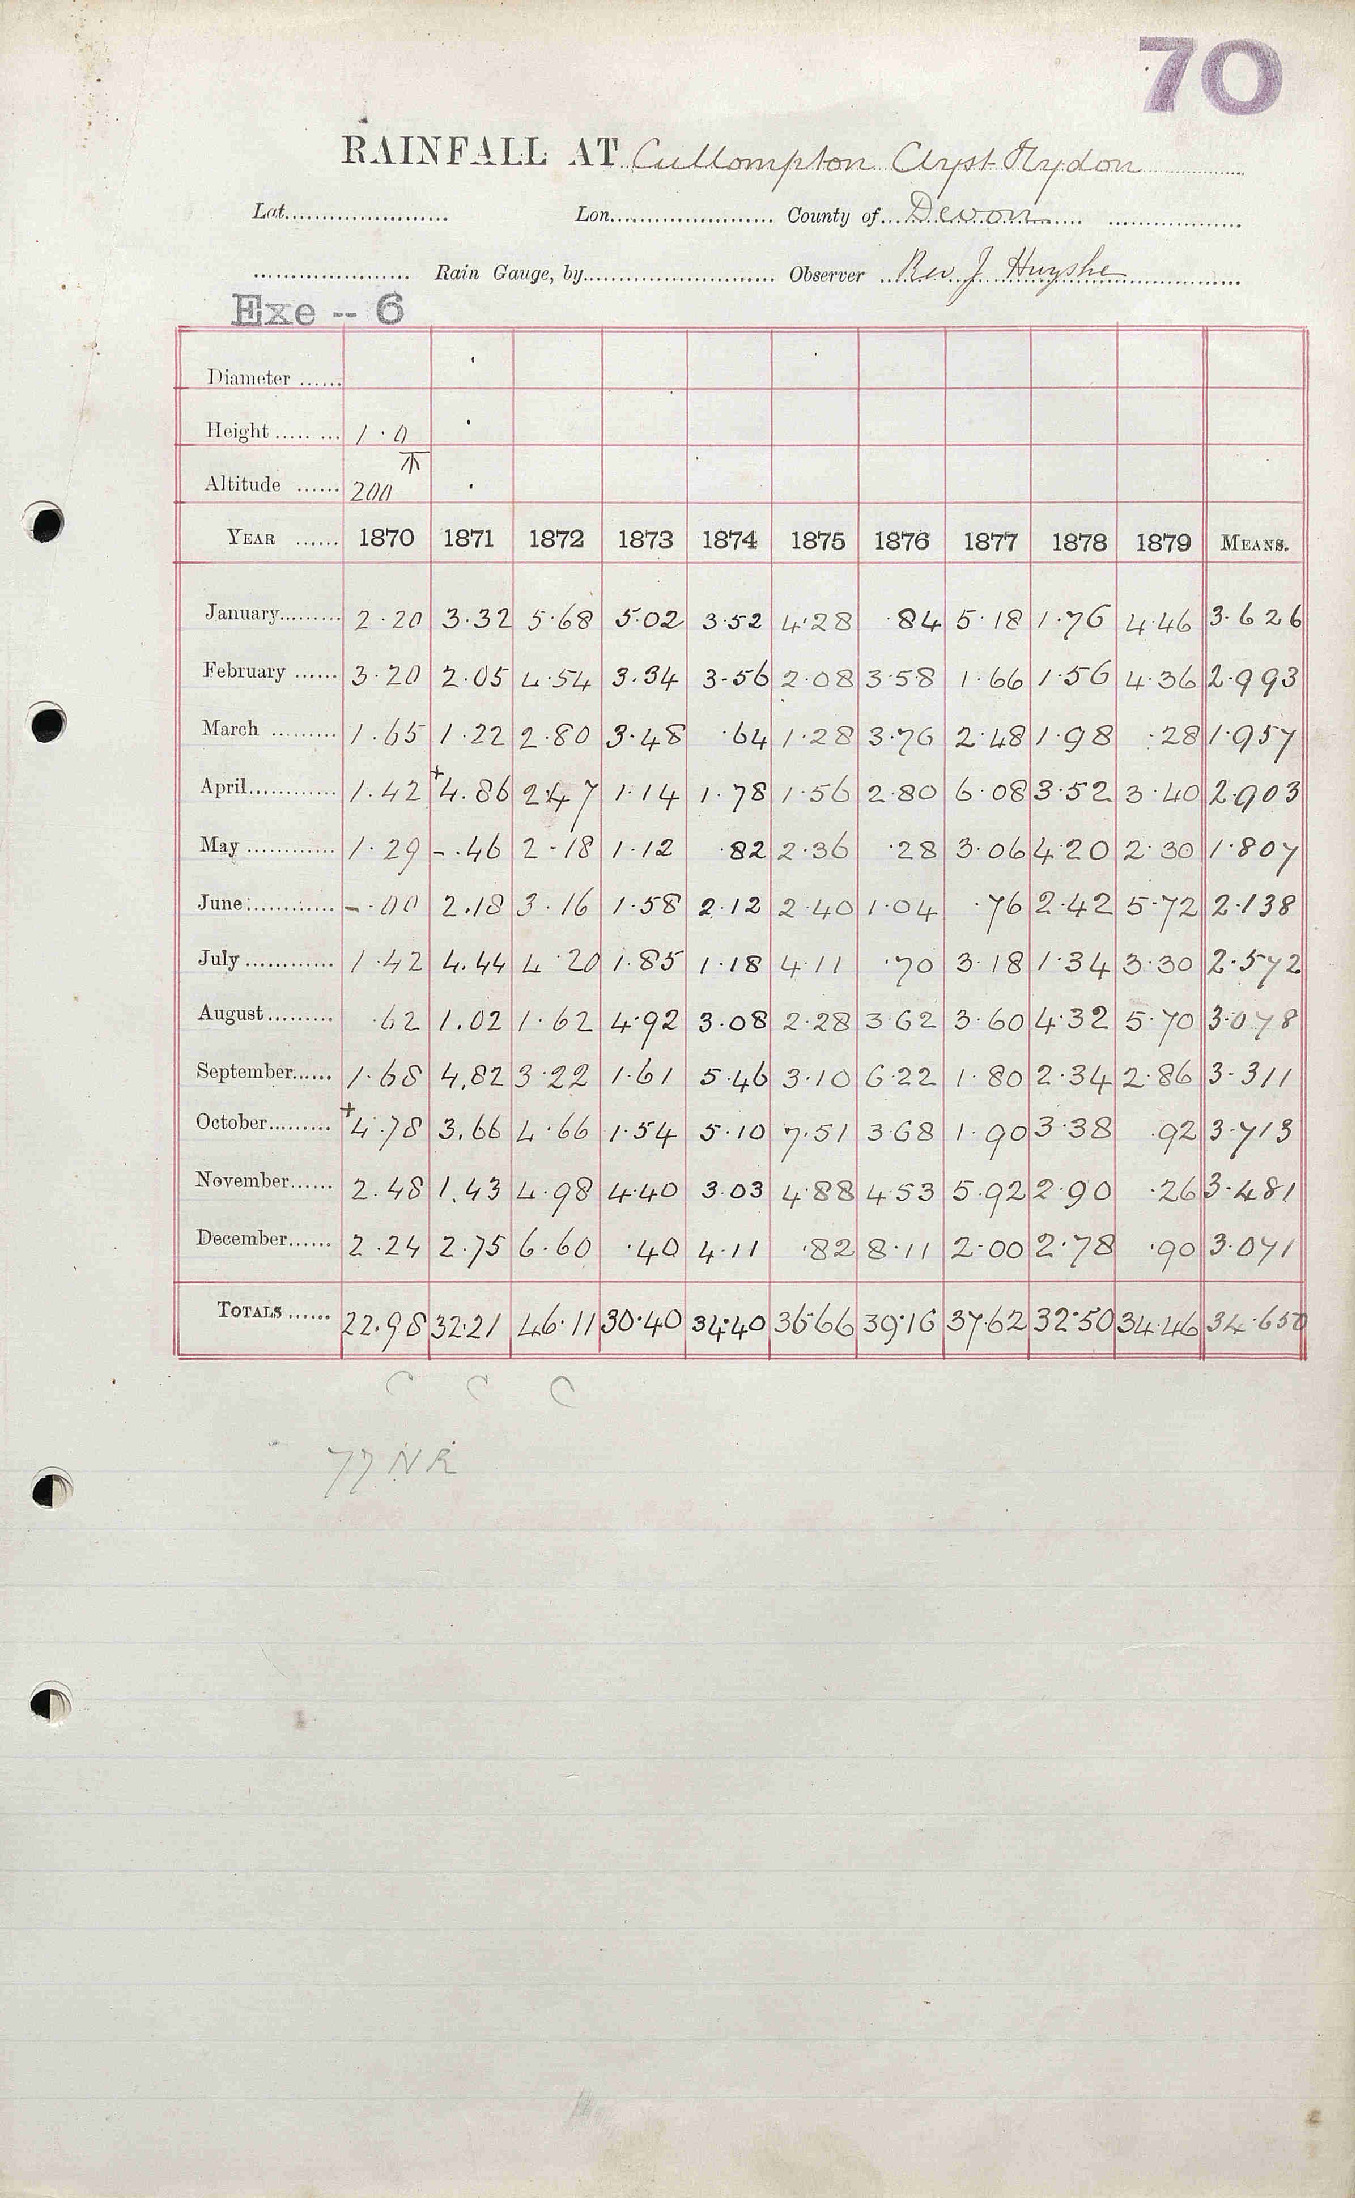 70
RAINFALL AT Cullompton Clyst Hydon
Lat. Lon. County of Devon
Rain Gauge, by Observer Rev J Huyshe
Exe -- 6
Diameter
Height 1.0
Altitude 200
YEAR 1870 1871 1872 1873 1874 1875 1876 1877 1878 1879 MEANS.
January 2.20 3.32 5.68 5.02 3.52 4.28 .84 5.18 1.76 4.46 3.626
February 3.20 2.05 4.54 3.34 3.56 2.08 3.58 1.66 1.56 4.36 2.993
March 1.65 1.22 2.80 3.48 .64 1.28 3.76 2.48 1.98 .28 1.957
April 1.42 +4.86 2.47 1.14 1.78 1.56 2.80 6.08 3.52 3.40 2.903
May 1.29 -.46 2.18 1.12 .82 2.36 .28 3.06 4.20 2.30 1.807
June -.00 2.18 3.16 1.58 2.12 2.40 1.04 .76 2.42 5.72 2.138
July 1.42 4.44 4.20 1.85 1.18 4.11 .70 3.18 1.34 3.30 2.572
August .62 1.02 1.62 4.92 3.08 2.28 3.62 3.60 4.32 5.70 3.078
September 1.68 4.82 3.22 1.61 5.46 3.10 6.22 1.80 2.34 2.86 3.311
October +4.78 3.66 4.66 1.54 5.10 7.51 3.68 1.90 3.38 .92 3.713
November 2.48 1.43 4.98 4.40 3.03 4.88 4.53 5.92 2.90 .26 3.481
December 2.24 2.75 6.60 .40 4.11 .82 8.11 2.00 2.78 .90 3.071
TOTALS 22.98 32.21 46.11 30.40 34.40 36.66 39.16 37.62 32.50 34.46 34.650
C C C
77 NR